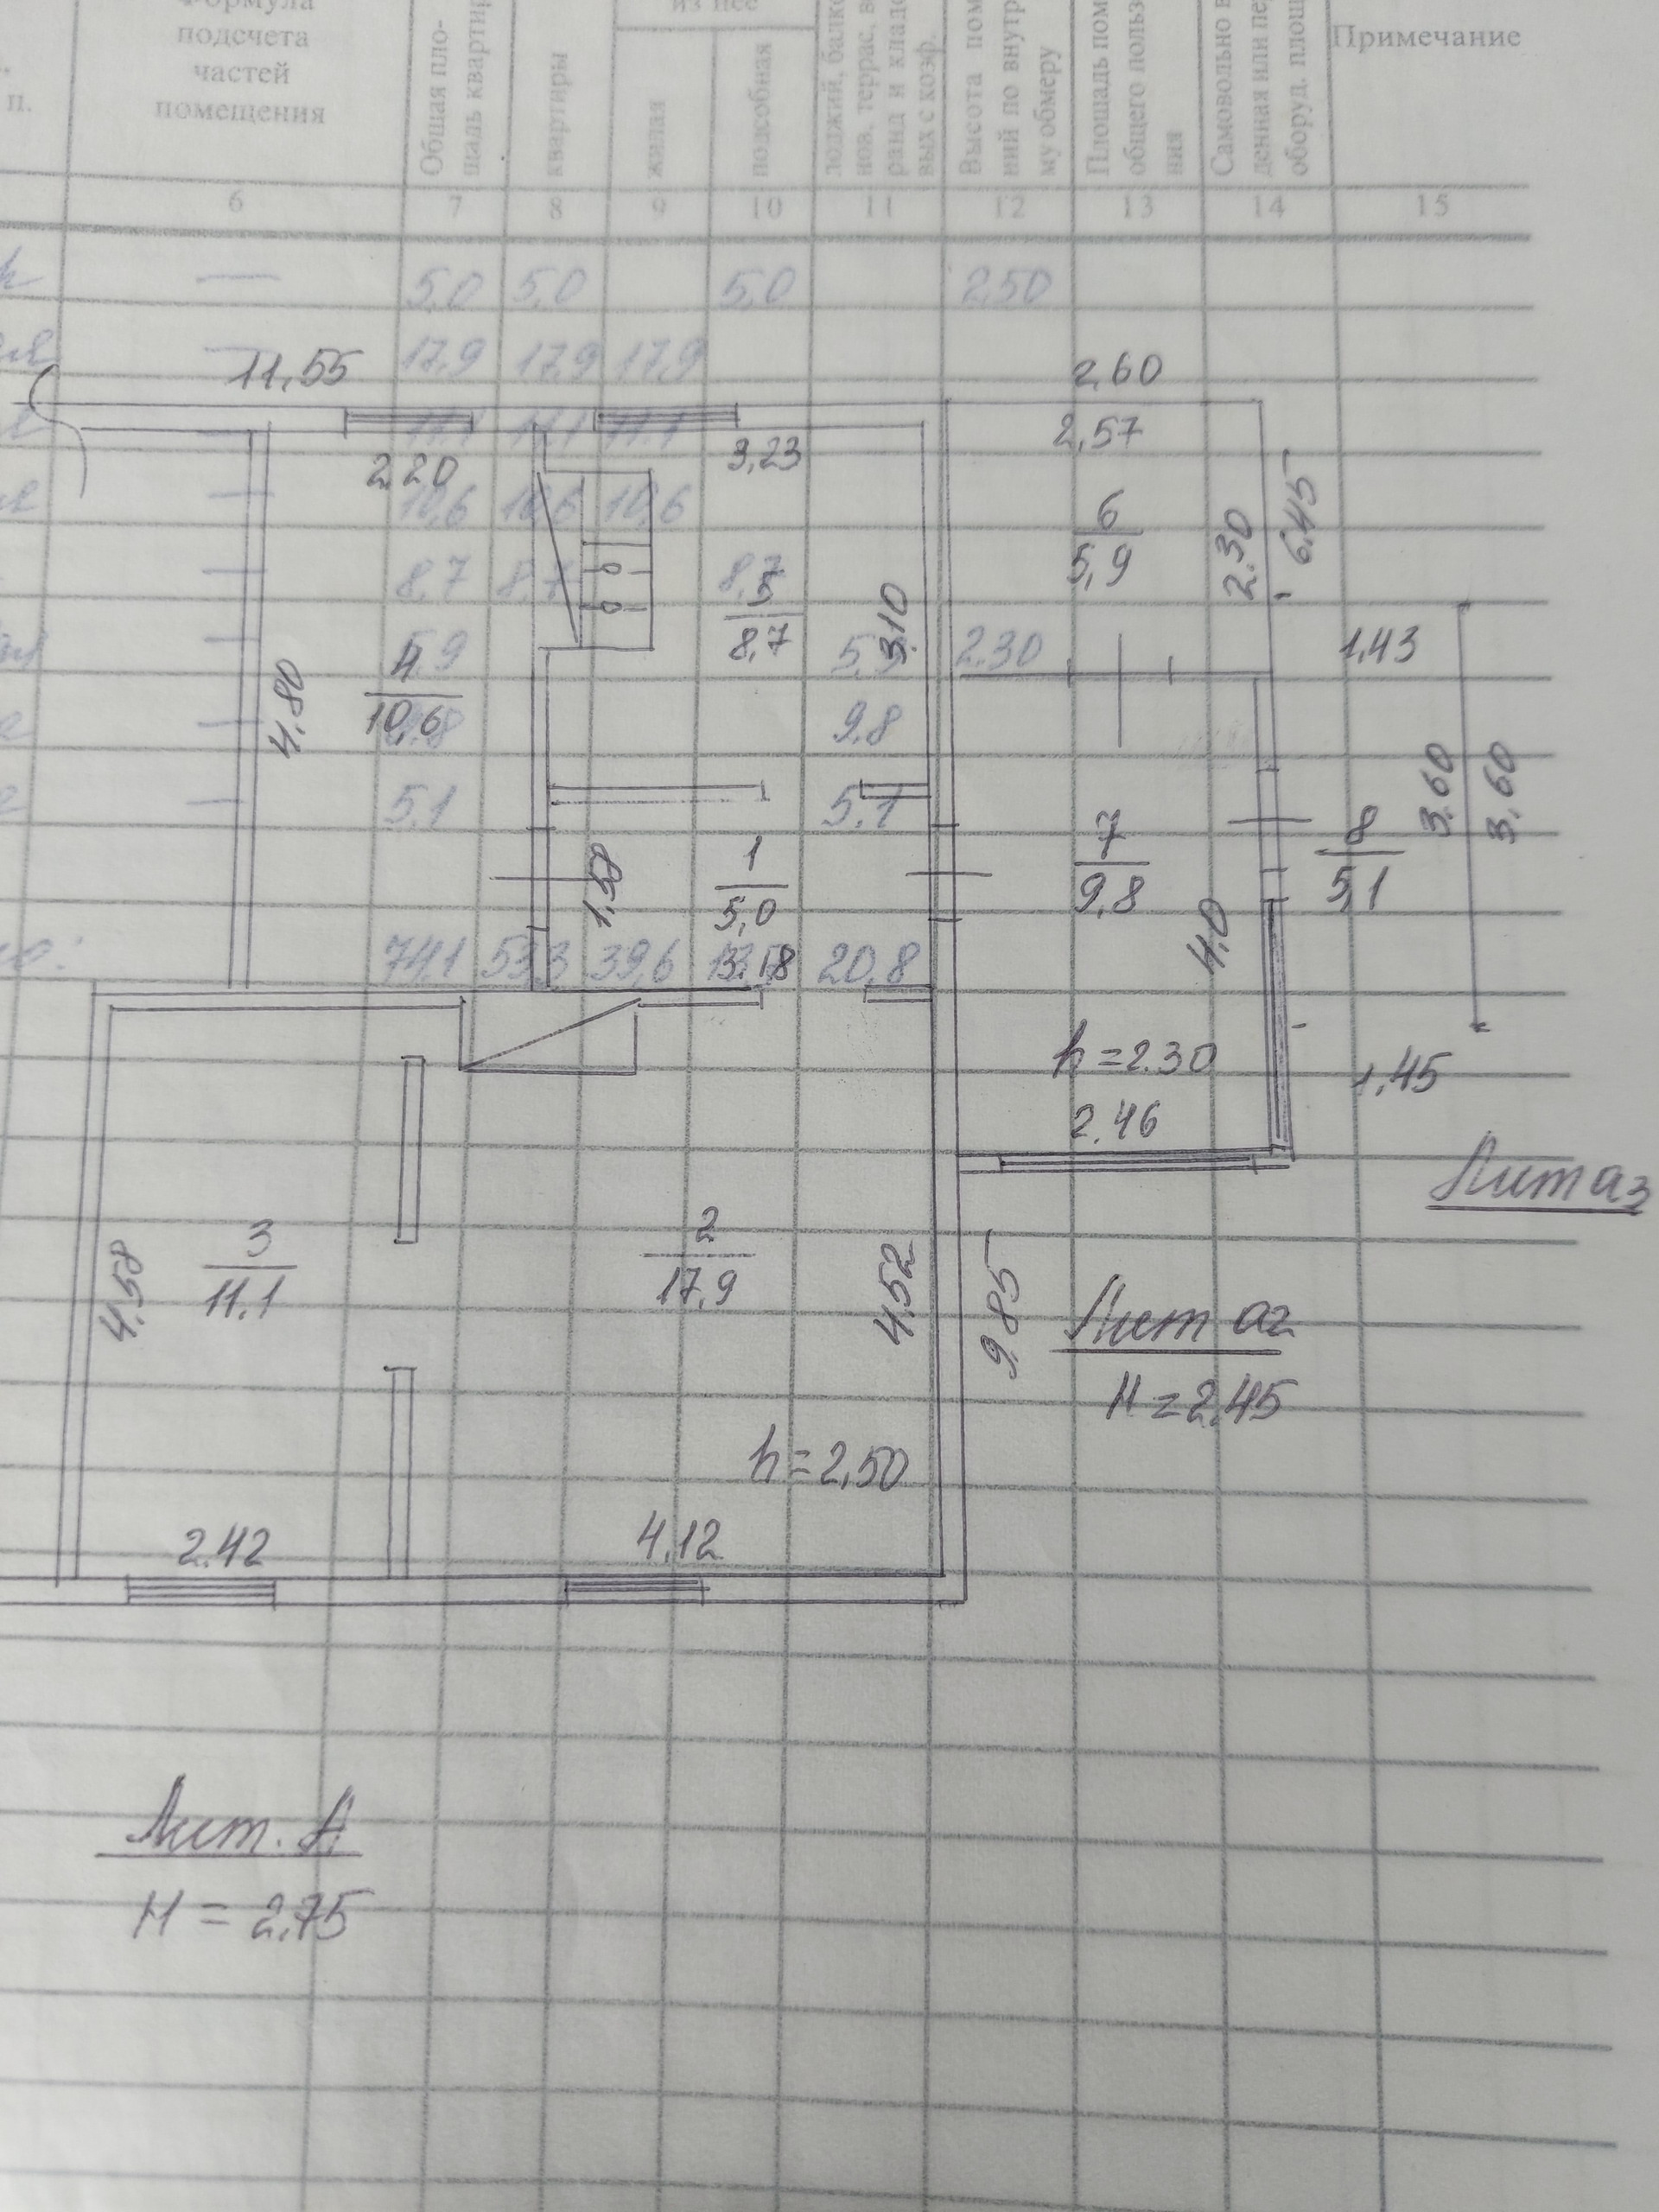 Формула
подсчета
частей
помещения
п.
Общая пло-
щадь квартир
из нее
квартиры
жилая
подсобная
нов, террас, в
ранд и кладо
вых с коэф.
Высота пом
ний по внутр
му обмеру
Площадь пом
общего польз
ния
Самовольно в
денная или пе
оборуд. площ
Примечание
6 7 8 9 10 11 12 13 14 15
— 5,0 5,0 5,0 2,50
— 17,9 17,9 17,9
— 11,1 11,1 11,1
— 10,6 10,6 10,6
— 8,7 8,7 8,7
— 5,9 5,9 2.30
— 9,8 9,8
— 5,1 5,1
74,1 53,3 39,6 20,8
11,55
2,60
2,57
2.20
3,23
6
5,9
2.30
6,45
5
8,7
3.10
1,43
4,80
4
10,6
3.60
3,60
1
5,0
7
9,8
8
5,1
3.18
4,0
h=2.30
2,46
1,45
Лит аз
3
11.1
4,58
2
17,9
4,52
9.85
Лит а2
H=2,45
h=2,50
2.42
4,12
Лит. А
H = 2,75